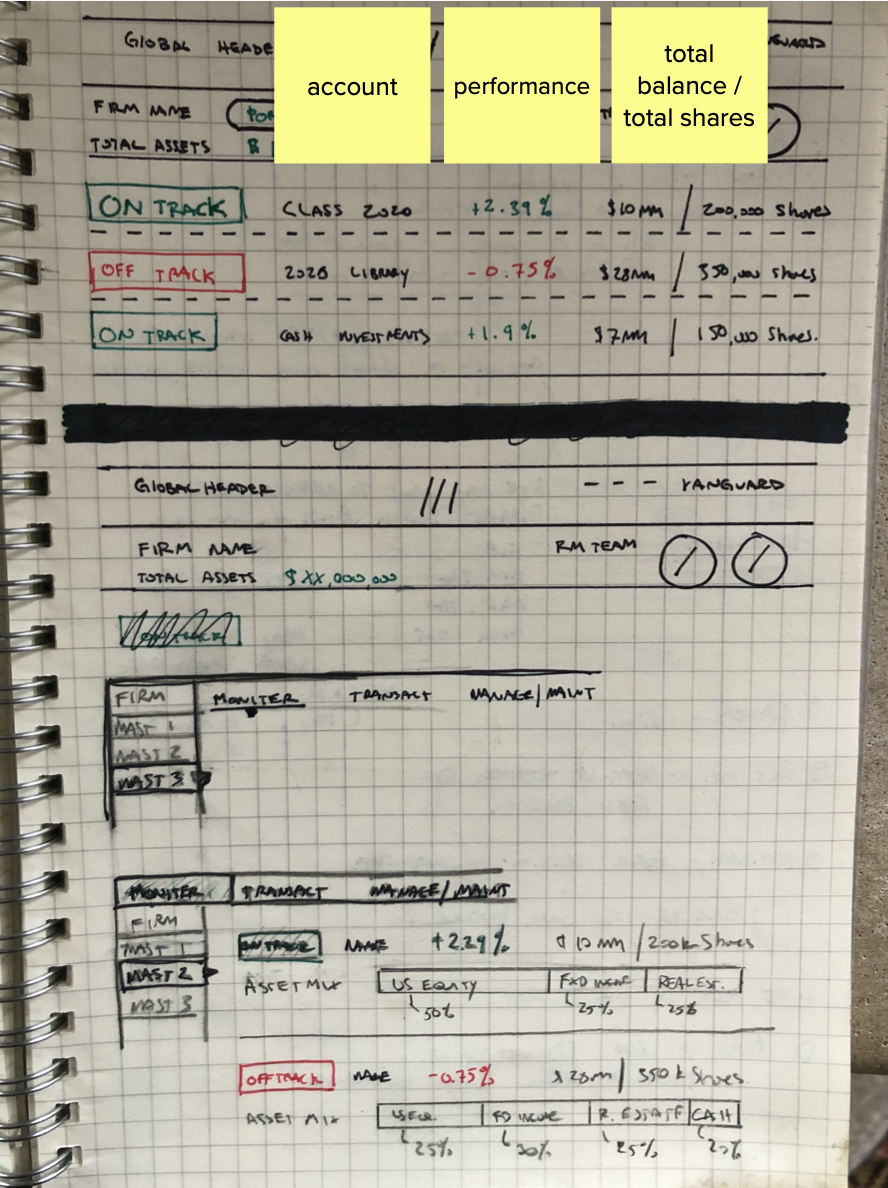 GLOBAL HEADE
account
performance
total
balance /
total shares
FIRM NAME
TOTAL ASSETS $
ON TRACK CLASS 2020 +2.39% $10MM / 200,000 Shares
OFF TRACK 2020 LIBRARY -0.75% $28MM / 350,000 Shares
ON TRACK CASH INVESTMENTS +1.9% $7MM / 150,000 Shares.
GLOBAL HEADER /// - - - VANGUARD
FIRM NAME RM TEAM
TOTAL ASSETS $XX,000,000
FIRM MONITER TRANSACT MANAGE/MAINT
MAST 1
MAST 2
MAST 3
MONITER TRANSACT MANAGE/MAINT
FIRM
MAST 1 ON TRACK NAME +2.29% $10MM / 200k Shares
MAST 2 ASSET MIX US EQUITY FXD INCME REAL EST.
MAST 3 50% 25% 25%
OFF TRACK NAME -0.75% $28MM / 350k Shares
ASSET MIX US EQU. FD INCME R. ESTATE CASH
25% 30% 25% 20%